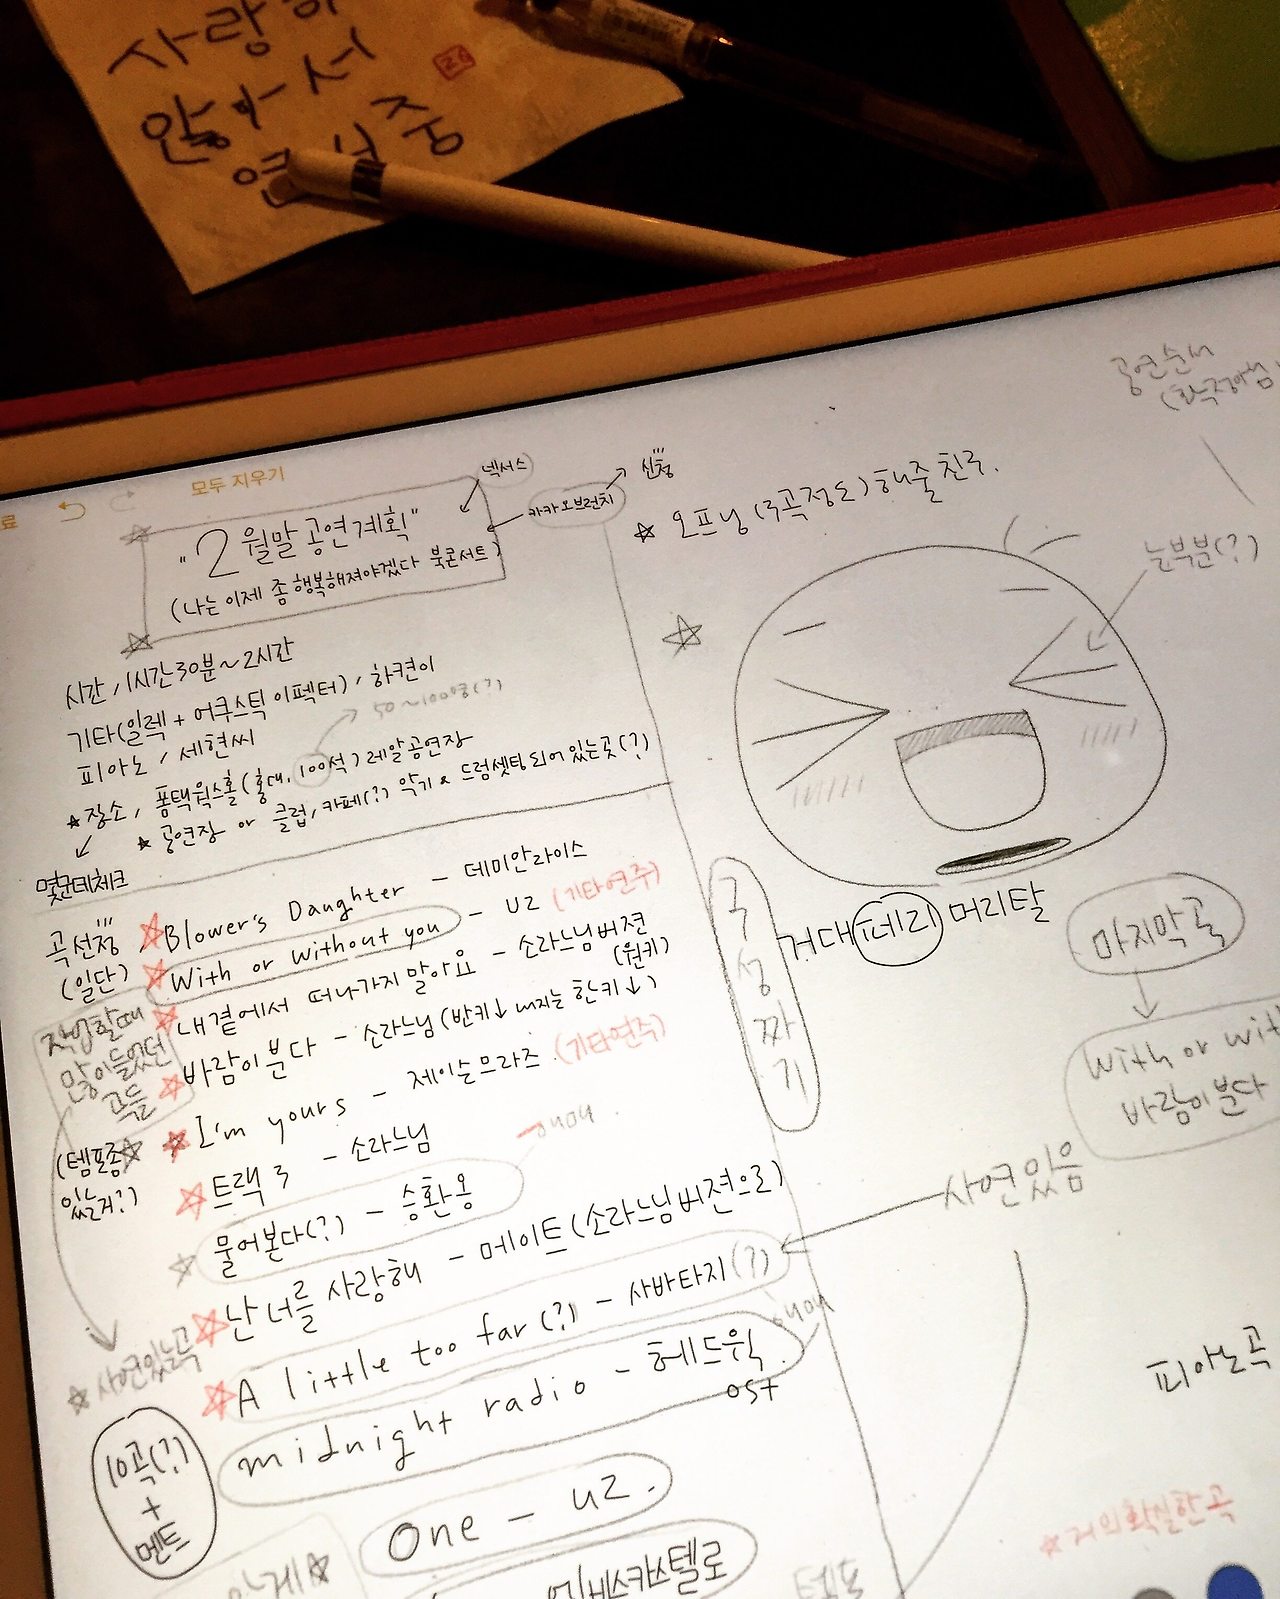 사랑하
앉아서
연습중
모두 지우기
"2월말 공연계획"
(나는 이제 좀 행복해져야겠다 북콘서트)
넥서스
카카오브런치
신청
시간, 1시간30분~2시간
기타(일렉 + 어쿠스틱 이펙터), 하켠이
피아노, 세현씨
50~100명(?)
★장소, 폼텍웍스홀(홍대, 100석) 레알공연장
★ 공연장 or 클럽, 카페(?) 악기 & 드럼셋팅되어있는곳(?)
몇군데체크
곡선정
(일단)
★Blower's Daughter - 데미안라이스
★With or without you - U2 (기타연주)
★내곁에서 떠나가지 말아요 - 소라느님버젼
(원키)
★바람이분다 - 소라느님(반키↓ 내지는 한키↓)
작업할때
많이들었던
곡들
★I'm yours - 제이슨므라즈 (기타연주)
(템포좀
있는거?)
★트랙 3 - 소라느님
★물어본다(?) - 승환옹
★난 너를 사랑해 - 메이트(소라느님버젼으로)
★사연있는곡
★A little too far(?) - 사바타지(?)
midnight radio - 헤드윅
ost
10곡(?)
+
멘트
One - U2.
카스텔로
공연순서
★오프닝(3곡정도)해줄친구.
★
눈부분(?)
거대페리머리탈
구성짜기
마지막곡
With or wit
바람이분다
사연있음
피아노곡
★거의확실한곡